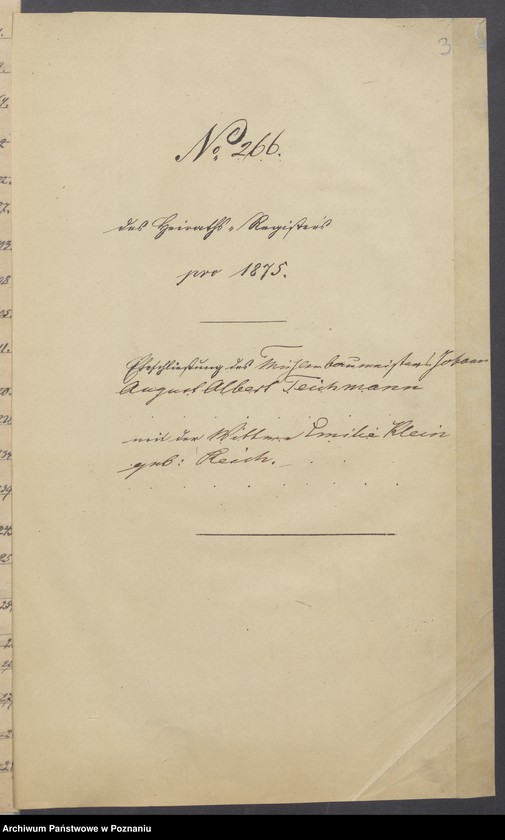 3
No. 266.
des Heiraths-Registers
pro 1875.
Eheschließung des Mühlenbaumeisters Johann
August Albert Teichmann
mit der Wittwe Emilie Klein
geb: Reich.
Archiwum Państwowe w Poznaniu